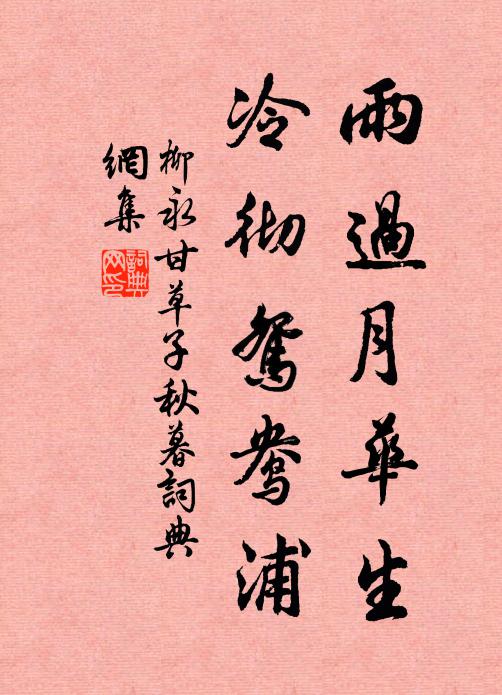 雨過月華生
冷彻鴛鴦浦
柳永甘草子秋暮詞典
網集
詞典
网印